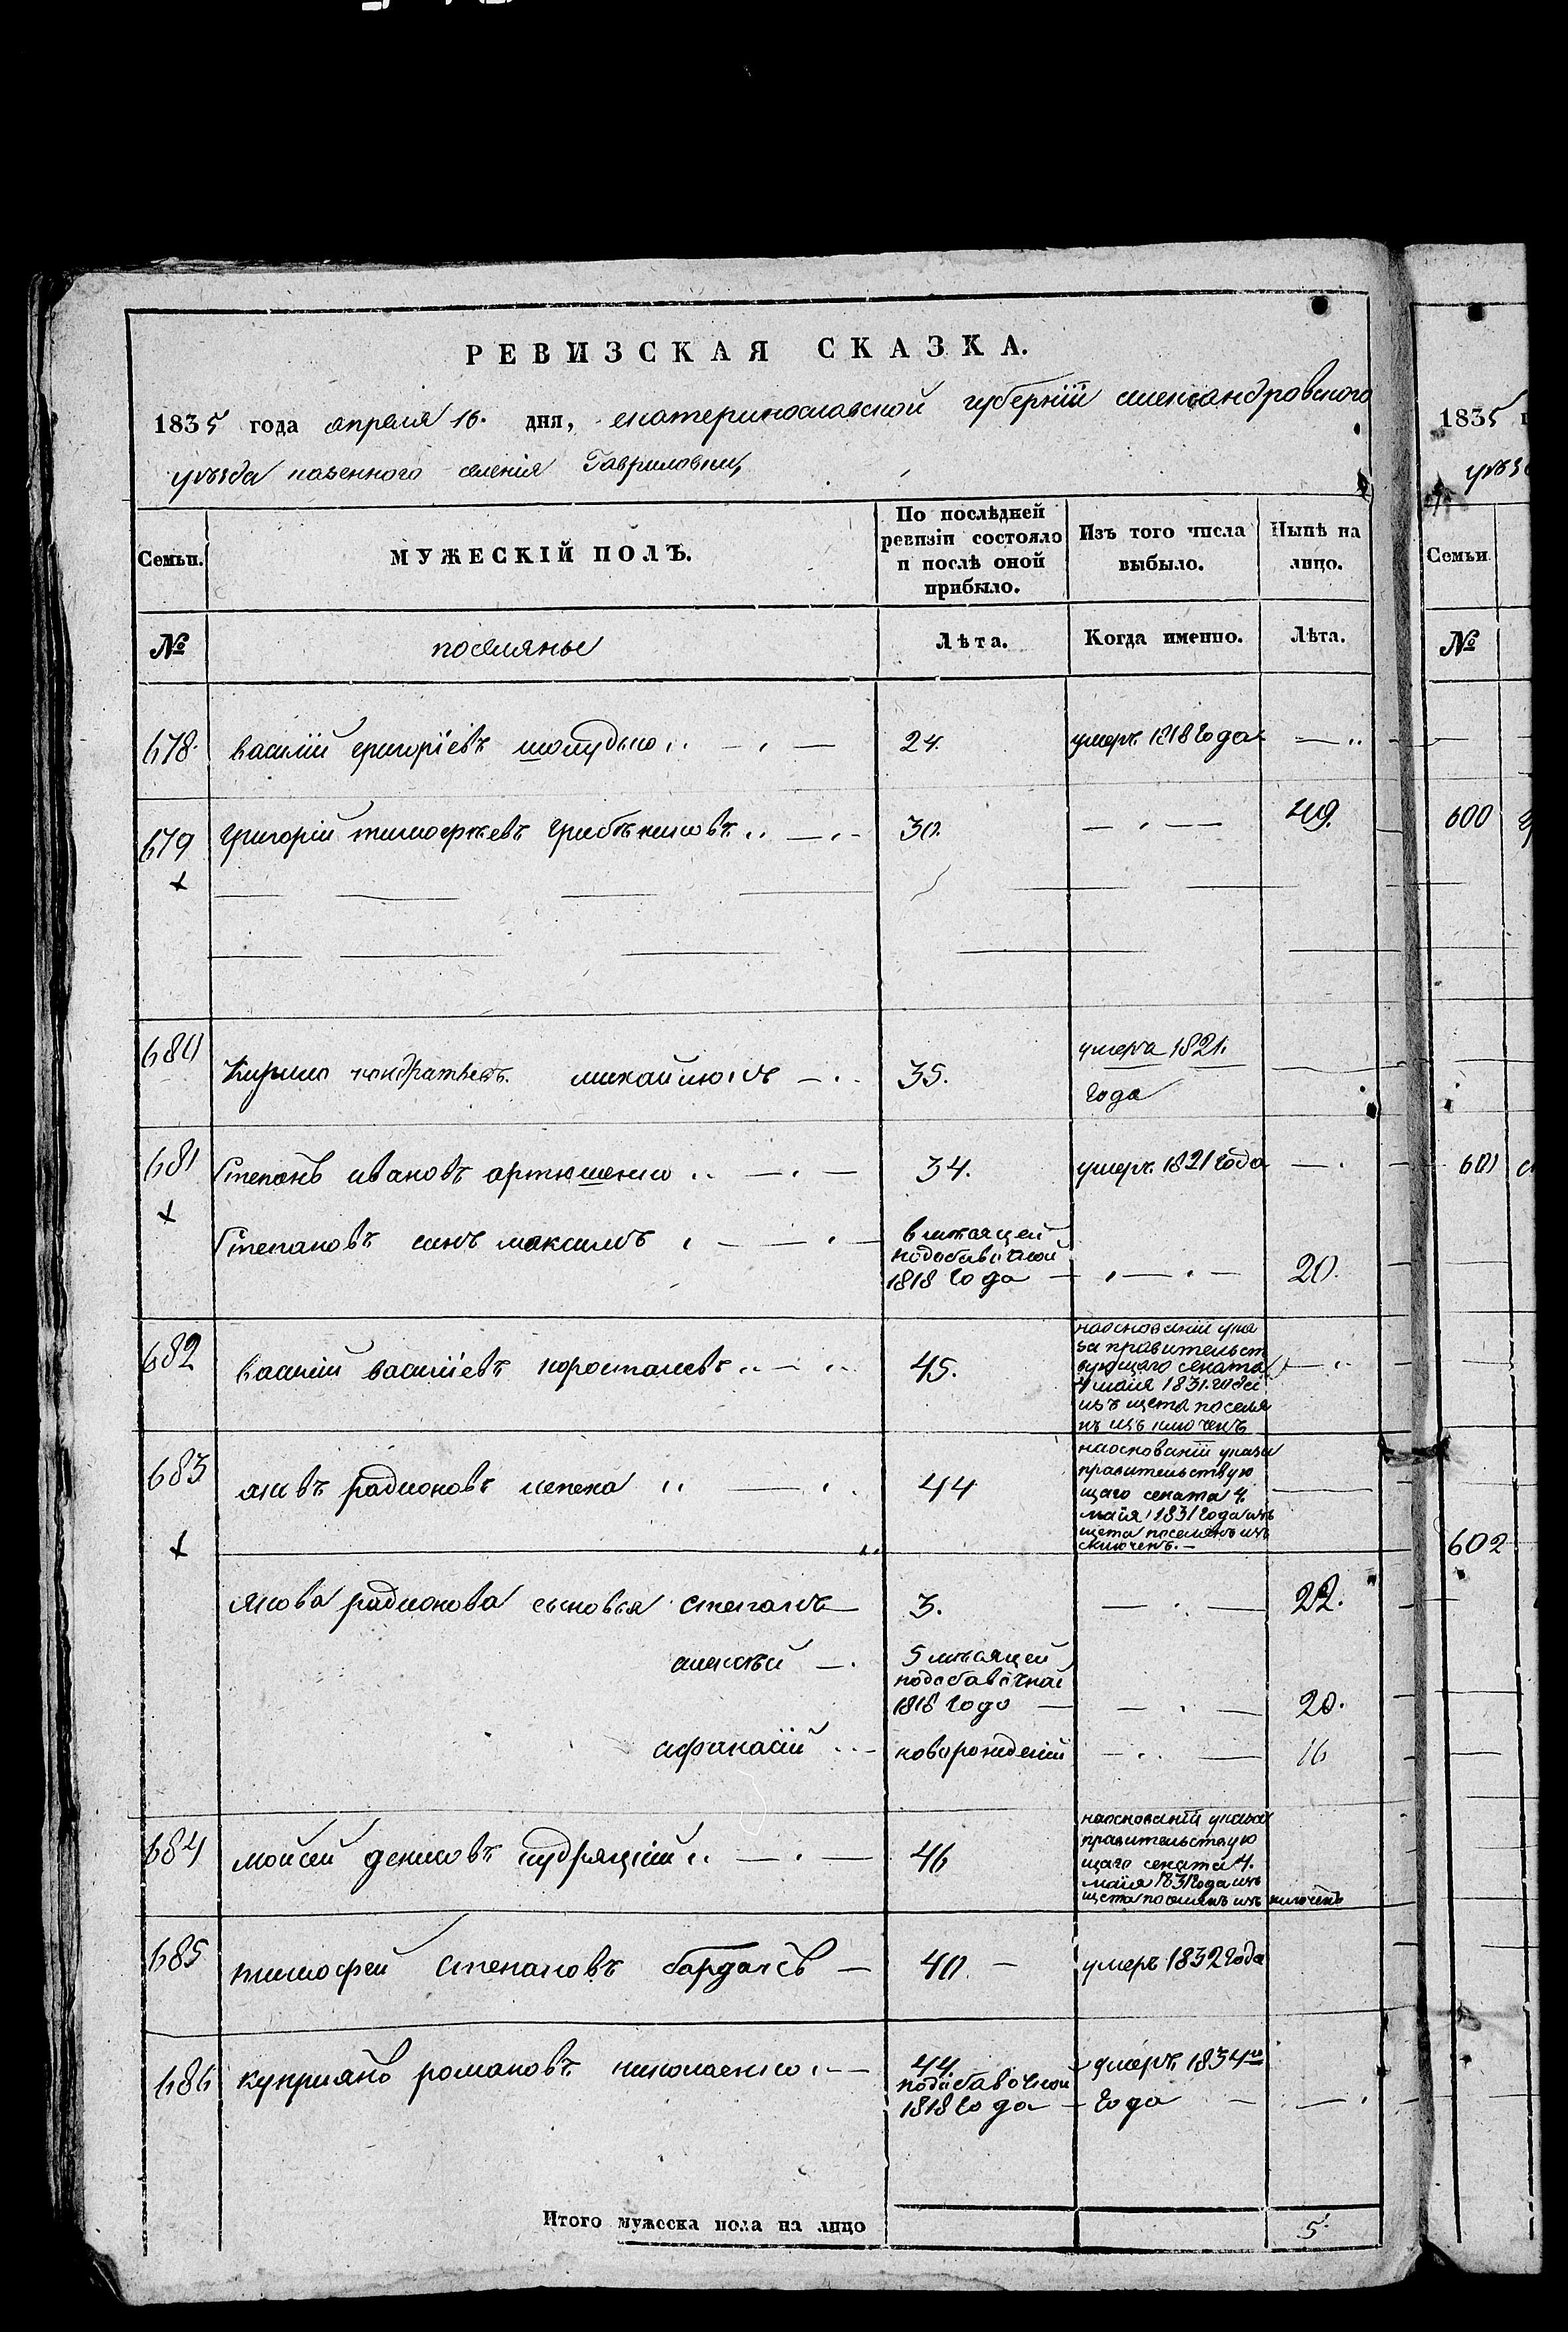 РЕВИЗСКАЯ СКАЗКА.
1835 года апреля 16. дня, екатеринославской губернiй александровского
уъзда казенного селенiя Гавриловки,
Семьи.
МУЖЕСКІЙ ПОЛЪ.
По послѣдней
ревизіи состояло
и послѣ оной
прибыло.
Изъ того числа
выбыло.
Нынѣ на
лицо.
№
поселяные
Лѣта.
Когда именно.
Лѣта.
678. василiй григорiевъ 24. умеръ 1818 Года
679 григорiй тимофѣевъ 30. 49.
680 Кирило кондратьевъ. 35. умеръ 1821.
года
681 Степанъ ивановъ артюшенко 34. умеръ 1821 года
Степановъ сынъ максимъ
мѣсяцей
подобавочной
1818 Года 20.
682 василiй василiевъ коросталевъ 45.
на основанiй ука
за правительст
вующаго сената
4 майя 1831. года
изъ щета поселя
нъ изключенъ
683 яковъ радионовъ лепека 44
на основанiй указа
правительствую
щаго сената 4.
майя 1831 Года изъ
щета поселянъ из
ключенъ. –
Якова радионова сыновья степанъ 3. 22.
алексѣй
5 мѣсяцей
подобавочной
1818 Году 20.
афанасiй новорожденiй 16
684 мойсей денисовъ кудряцкiй 46
на основанiй указа
правительствую
щаго сената 4.
майя 1831 Года изъ
щета поселянъ изъключенъ
685 тимофей степановъ бардаковъ 40. умеръ 1832 Года
686 куприянъ романовъ николаенко 44
подобавочной
1818 Года
умеръ 1834го
года
Итого мужеска пола на лицо 5.
1835
уъз
Семьи
№
600
601
602